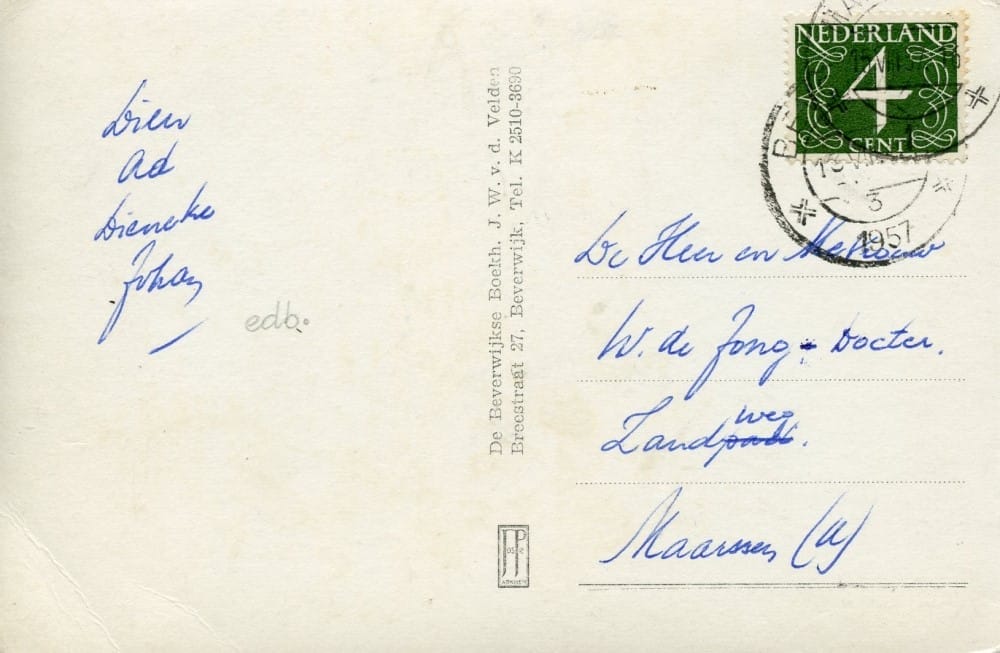 Dien
Ad
Dieneke
Johan
edb.
De Beverwijkse Boekh. J. W. v. d. Velden
Breestraat 27, Beverwijk, Tel. K 2510-3690
JP
ARNHEM
NEDERLAND
4
CENT
3
1957
De Heer en Mevrouw
W. de Jong - Docter.
Zandweg.
Maarssen (U)